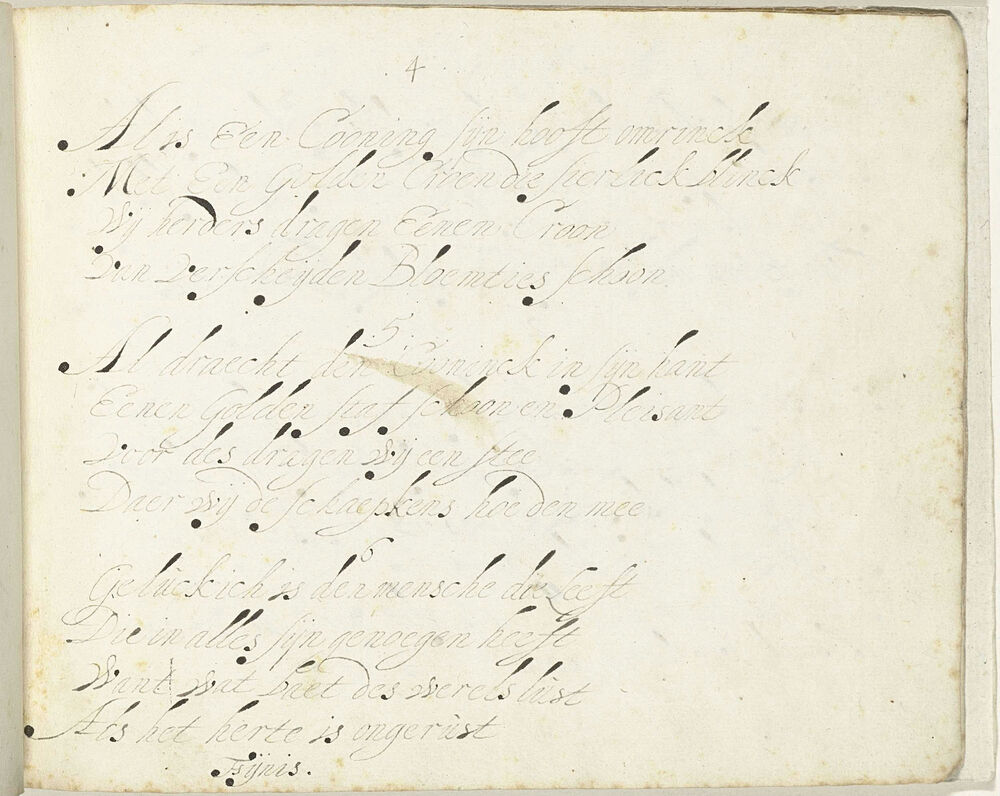 4
Al is Een Cooning sijn hooft omrinck
Met Een Golden Croen die sierlick blinck
Wij herders dragen Eenen Croon
Van Verscheijden Bloemties schoon.
5.
Al draecht den Cooninck in sijn hant
Eenen Golden staf schoon en Pleisant
Voor des dragen wij een stee
Daer wij de schaepkens hoeden mee
6
Geluckich is den mensche die Leeft
Die in alles sijn genoegen heeft
Want wat baet des werels lust
Als het herte is ongerust
Fijnis.